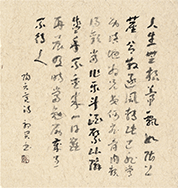 人生無根蒂飄如陌上
塵分散逐風轉此已非常
身落地為兄弟何必骨肉
親得歡當作樂斗酒聚比鄰
盛年不重來一日難
再晨及時當勉勵歲月
不待人
陶元亮詩